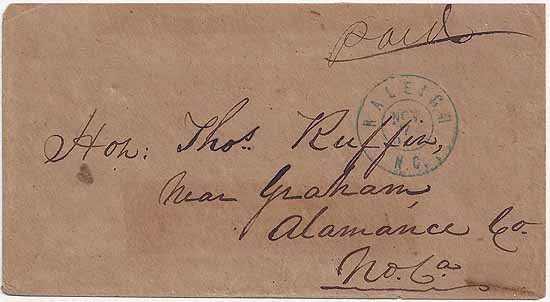 Paid
RALEIGH
NOV.
N.C.
Hon: Thos. Ruffin,
Near Graham,
Alamance Co.
No. Ca.